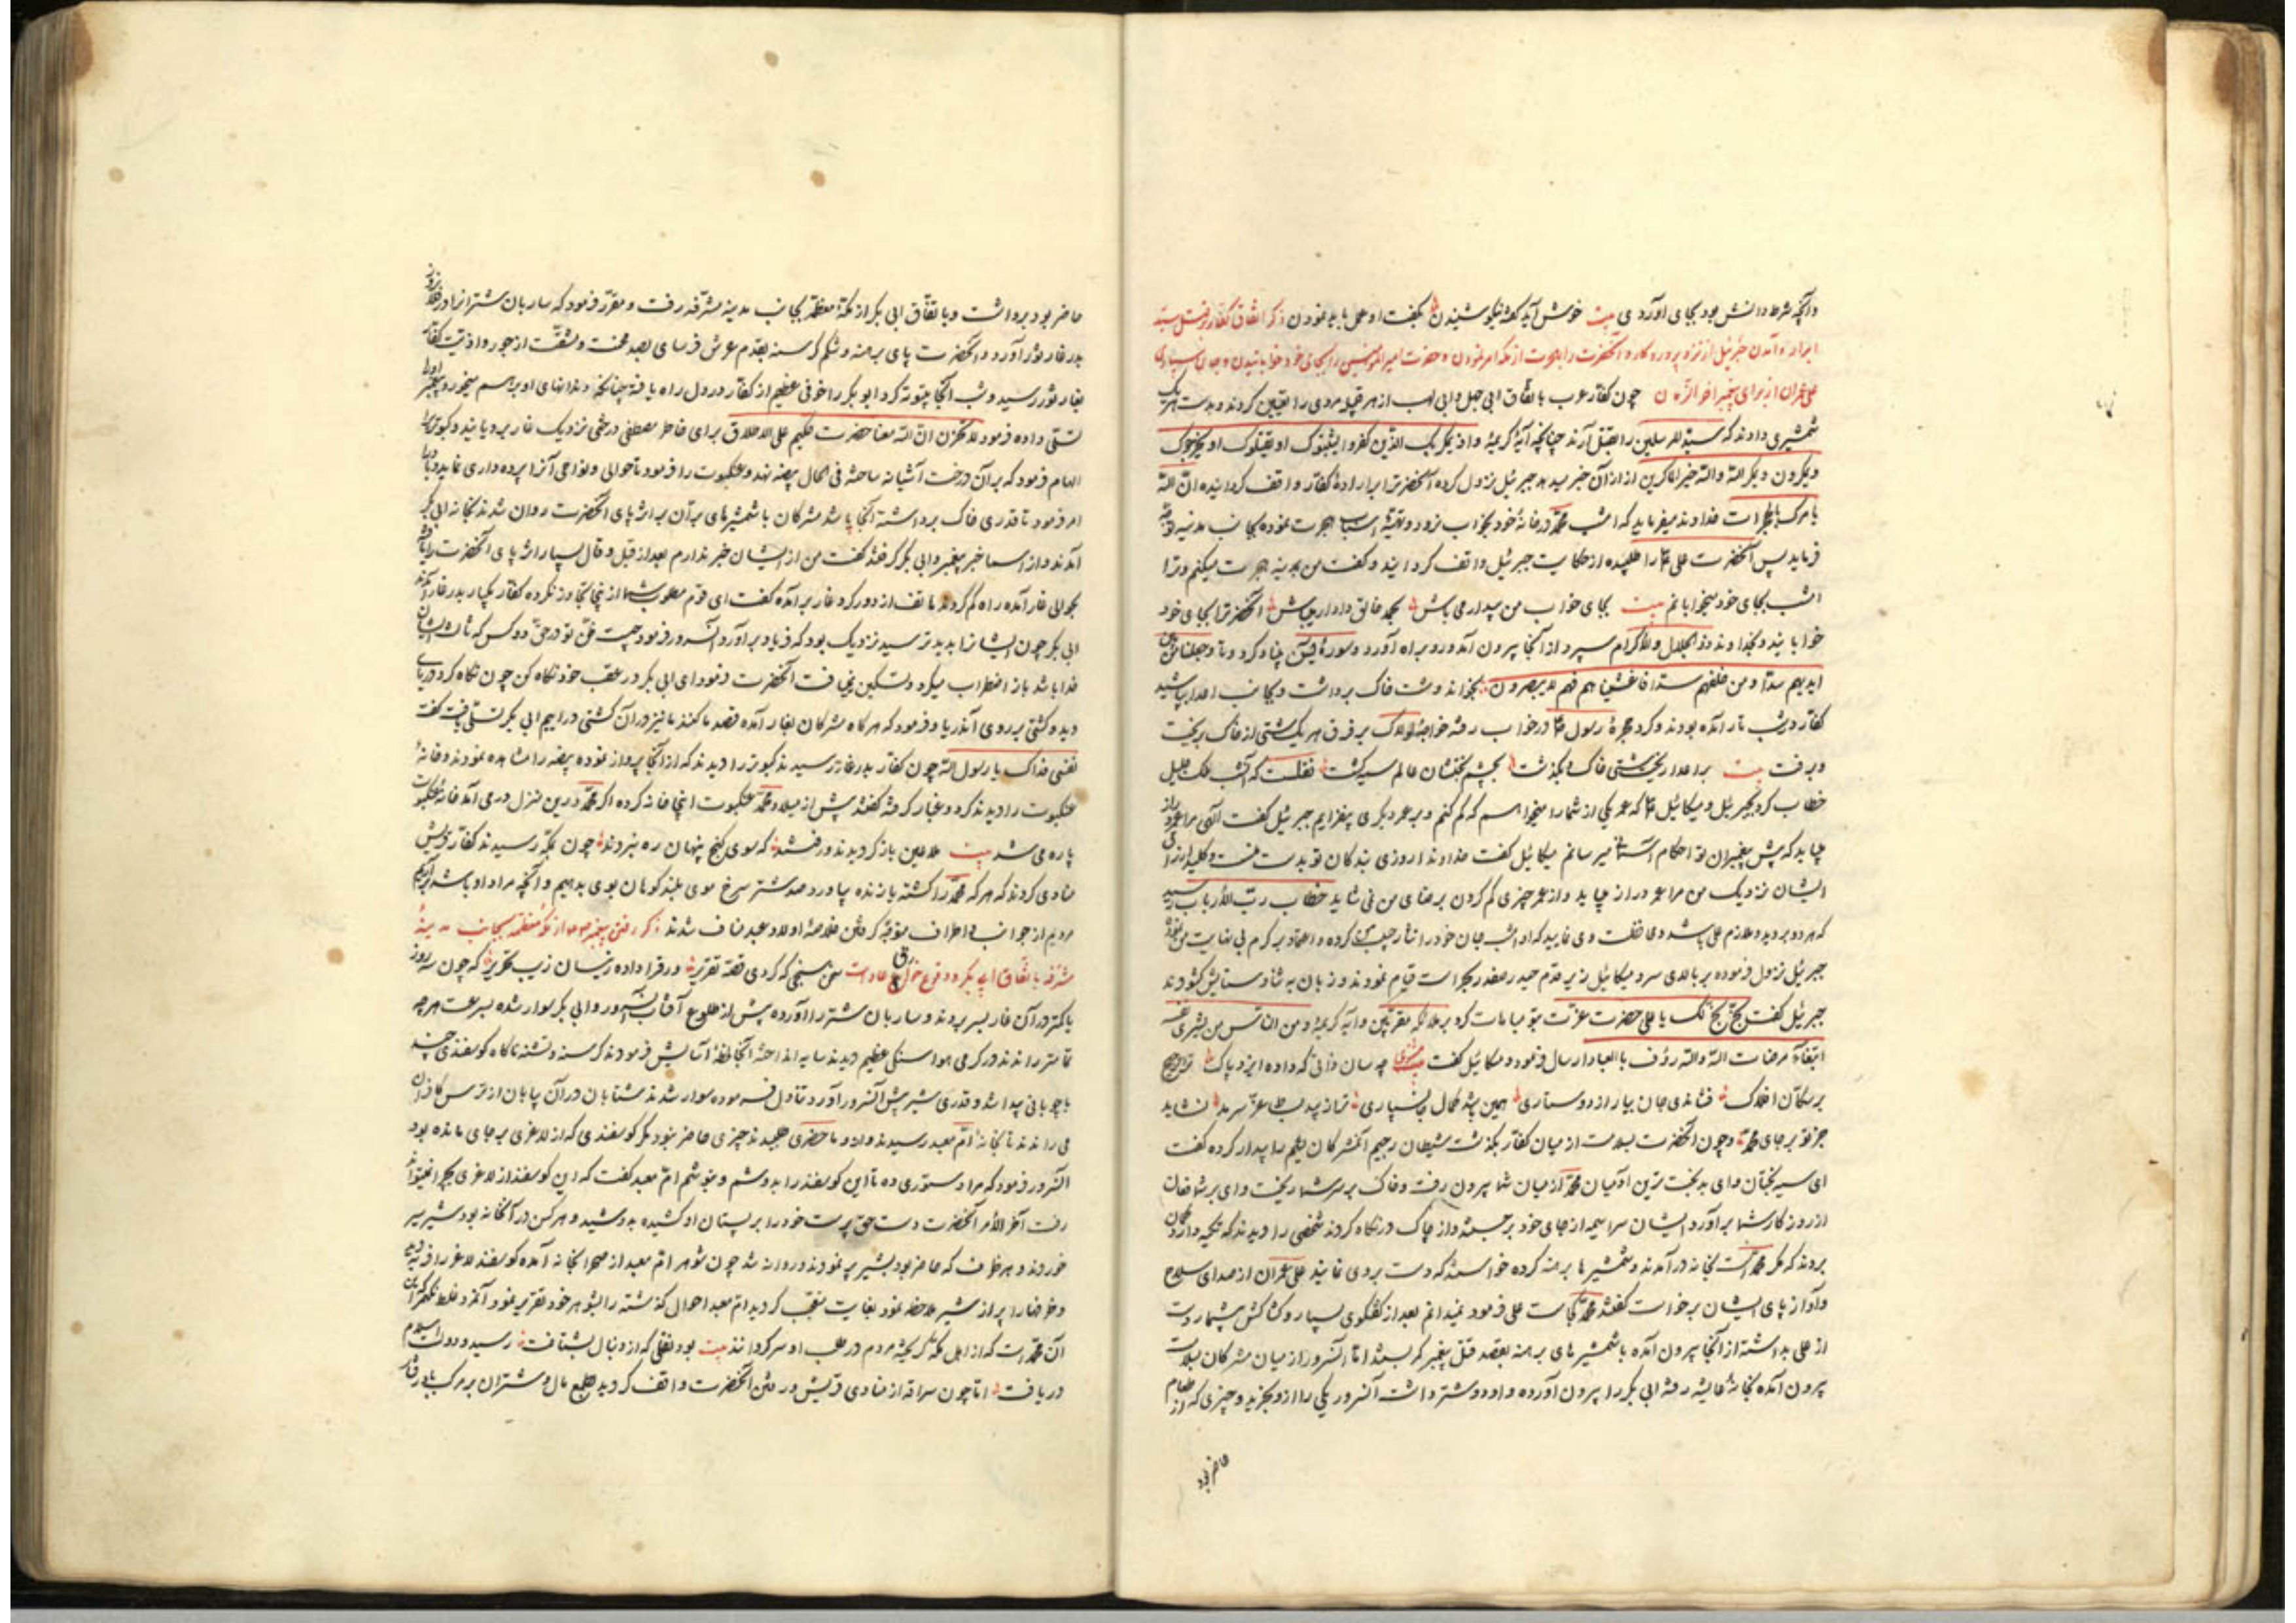 وآنچه شرط دانش بود بجای آوردی بیت خوش آید گفته نیکو شنیدن بگفت او عمل باید نمودن ذکر اتفاق کفار در قتل سید
ابرار و آمدن جبرئیل از نزد پروردگار و آنحضرت را بهجرت از مکه امر نمودن و حضرت امیر المؤمنین را بجای خود خوابانیدن و جان سپاری
علی عمران از برای پیغمبر آخر الزمان چون کفار عرب با تفاق ابی جهل و ابی لهب از هر قبیله مردی را تعیین کردند و بدست هر یک
شمشیری دادند که سید المرسلین را بقتل آرند چنانچه آیهٔ کریمهٔ واذ یمکر بک الذین کفروا لیثبتوک او یقتلوک او یخرجوک
ویمکرون ویمکر الله والله خیر الماکرین از آن خبر میدهد جبرئیل نزول کرده آنحضرترا بر ارادهٔ کفار واقف گردانیده ان الله
یامرک بالهجرة خداوند میفرماید که امشب محمد در خانهٔ خود بخواب نرود و تهیهٔ اسباب هجرت نموده بجانب مدینه توجه
فرماید پس آنحضرت علی را طلبیده از حکایت جبرئیل واقف گردانید و گفت من بمدینه هجرت میکنم و ترا
امشب بجای خود میخوابانم بیت بجای خواب من بیدار می باش بحمد خالق دادار می باش آنحضرترا بجای خود
خوابانید و بخداوند ذو الجلال والاکرام سپرد و از آنجا بیرون آمد و رو براه آورد و سورهٔ یس بنیاد کرد و تا وجعلنا من بین
ایدیهم سدا ومن خلفهم سدا فاغشیناهم فهم لا یبصرون بخواند و مشت خاک برداشت و بجانب اعدا پاشید
کفار در شب تار آمده بودند و گرد حجرهٔ رسول در خواب رفته خواجهٔ لولاک بر فرق هر یک مشتی از خاک بریخت
و برفت بیت بر اعدا ریخت مشتی خاک و بگذشت بچشم بختشان عالم سیه گشت نقلست که آنشب ملک جلیل
خطاب کرد بجبرئیل و میکائیل که عمر یکی از شما را میخواهم که کم کنم و بر عمر دیگری بیفزایم جبرئیل گفت الهی مرا عمر دراز
می باید که پیش پیغمبران تو احکام آسمانی میرسانم میکائیل گفت خداوندا روزی بندگان تو بدست منست و کلید ارزاق
ایشان نزدیک من مرا عمر دراز می باید و از عمر چیزی کم کردن بر ضای من نمی شاید خطاب رب الارباب رسید
که هر دو بروید و ملازم علی باشید و محافظت وی نمایید که او امشب جان خود را نثار حبیب من کرده و اعتماد بر کرم بی غایت من نموده
جبرئیل نزول فرموده بر بالای سر و میکائیل زیر قدم حیدر صفدر بحراست قیام نمودند و زبان به ثنا و ستایش گشودند
جبرئیل گفت بخ بخ لک یا علی حضرت عزت بتو مباهات کرد بر ملائکه مقربین و آیه کریمهٔ ومن الناس من یشری نفسه
ابتغاء مرضات الله والله رؤف بالعباد ارسال فرمود و میکائیل گفت مثنوی چه سان ذاتی که داده ایزد پاک ترا ترجیح
بر سکان افلاک فشاندی جان بیار از دوستاری همین باشد کمال جانسپاری ترا زیبد بساط عز سرمد نشاید
جز تو بر جای محمد و چون آنحضرت بسلامت از میان کفار بگذشت شیطان رجیم آن مشرکان لئیم را بیدار کرده گفت
ای سیه بختان و ای بدبخت ترین آدمیان محمد از میان شما بیرون رفت و خاک بر سر شما ریخت و ای بر شما فغان
از روزگار شما بر آورد ایشان سراسیمه از جای خود بر جسته و از چاک در نگاه کردند شخصی را دیدند که تکیه دارد گمان
بردند که مگر محمد است بخانه در آمدند و شمشیر ها برهنه کرده خواستند که دست بردی نمایند علی عمران از صدای سلاح
و آواز پای ایشان برخاست گفتند محمد کجاست علی فرمود نمیدانم بعد از گفتگوی بسیار و کشاکش بیشمار دست
از علی بداشته از آنجا بیرون آمده با شمشیر های برهنه بقصد قتل پیغمبر کمر بستند اما آنسرور از میان مشرکان بسلامت
بیرون آمده بخانهٔ عایشه رفته ابی بکر را بیرون آورده و او دو شتر داشت آنسرور یکی را از و بخرید و چیزی که از طعام
حاضر بود
حاضر بود برداشت و با تفاق ابی بکر از مکهٔ معظمه بجانب مدینه مشرفه رفت و مقرر فرمود که ساربان شترانرا در فلان روز
بدر غار ثور آورد و آنحضرت پای برهنه و شکم گرسنه بقدم عرش فرسای بصد محنت و مشقت از جور و اذیت کفار
بغار ثور رسید و شب آنجا بیتوته کرد ابو بکر را خوفی عظیم از کفار در دل راه یافته چنانکه دندانهای او بر هم میخورد پیغمبر اورا
تسلی داده فرمود لا تحزن ان الله معنا حضرت حکیم علی الاطلاق برای خاطر مصطفی درختی نزدیک غار برویانید و کبوتر را
الهام فرمود که بر آن درخت آشیانه ساخته فی الحال بیضه نهد و عنکبوت را فرمود تا حوالی و نواحی آنرا پرده داری نماید و باد را
امر فرمود تا قدری خاک برداشته آنجا پاشد مشرکان با شمشیرهای بران بر اثر پای آنحضرت روان شدند بخانه ابی بکر
آمدند و از اسما خبر پیغمبر و ابی بکر گرفتند گفت من از ایشان خبر ندارم بعد از قیل و قال بسیار اثر پای آنحضرت را یافته
بحوالی غار آمده راه گم کردند هاتف از دور گرد غار بر آمده گفت ای قوم مطلوب شما از اینجا تجاوز نکرده کفار بیکبار بدر غار آمدند
ابی بکر چون ایشانرا بدید بترسید نزدیک بود که فریاد بر آورد آنسرور فرمود چیست ظن تو در حق دو کس که ثالث ایشان
خدا باشد باز اضطراب میکرد و تسکین نمی یافت آنحضرت فرمود ای ابی بکر در عقب خود نگاه کن چون نگاه کرد دریای
دید و کشتی بر روی آن دریا و فرمود که هر گاه مشرکان بغار آمده قصد ما کنند ما نیز در آن کشتی در اییم ابی بکر تسلی یافت گفت
نفسی فداک یا رسول الله چون کفار بدر غار رسیدند کبوتر را دیدند که از آنجا پرواز نموده بیضه را مشاهده نمودند و خانهٔ
عنکبوت را دیدند گرد و غبار گرفته گفتند پیش از میلاد محمد عنکبوت اینجا خانه کرده اگر محمد درین منزل در می آمد خانهٔ عنکبوت
پاره می شد بیت ملاعین باز گردیدند و رفتند که سوی گنج پنهان ره نبردند چون بمکه رسیدند کفار قریش
منادی کردند که هر که محمد را کشته یا زنده بیاورد صد شتر سرخ موی بلند کوهان بوی بدهیم و آنچه مراد او باشد بر آریم
مردم از جوانب و اطراف متوجه گرفتن خلاصهٔ اولاد عبد مناف شدند ذکر رفتن پیغمبر از مکهٔ معظمه بجانب مدینهٔ
مشرفه با تفاق ابی بکر و وقوع خوارق عادات سخن سنجی که کردی قصه تقریر ورق را داده زینسان زیب تحریر که چون سه روز
یا کمتر در آن غار بسر بردند و ساربان شتر را آورده پیش از طلوع آفتاب آنسرور و ابی بکر سوار شده بسرعت هر چه
تمامتر راندند در گرمی هوا سنگی عظیم دیدند سایه انداخته آنجا لحظهٔ آسایش فرمودند گرسنه و تشنه ناگاه گوسفندی چند
با چوپانی پیدا شد و قدری شیر پیش آنسرور آورد تناول فرموده سوار شدند شتابان در آن بیابان از ترس کافران
می راندند تا بخانهٔ ام معبد رسیدند و از و ما حضری طلبیدند چیزی حاضر نبود مگر گوسفندی که از لاغری بر جای مانده بود
آنسرور فرمود که مرا دستوری ده تا این گوسفند را بدوشم و بنوشم ام معبد گفت که این گوسفند از لاغری بچرا نمیتواند
رفت آخر الامر آنحضرت دست حق پرست خود را بر پستان او کشیده بدوشید و هر کس در آنخانه بود شیر سیر
خوردند و هر ظرف که حاضر بود بشیر پر نمودند و روانه شد چون شوهر ام معبد از صحرا بخانه آمده گوسفند لاغر را فربه دید
و ظرفها را پر از شیر ملاحظه نمود بغایت متعجب گردید ام معبد احوال گذشته را بشوهر خود تقریر نمود آنمرد غلط نکرده که این
آن محمد است که از اهل مکه گریخته مردم در طلب او سرگردانند بیت بود نقلی که از دنبال بشتافت رسید و دولت اسلام
دریافت اما چون سراقه از منادی قریش و رفتن آنحضرت واقف گردید بطمع مال و شتران بر مرکب باد رفتار